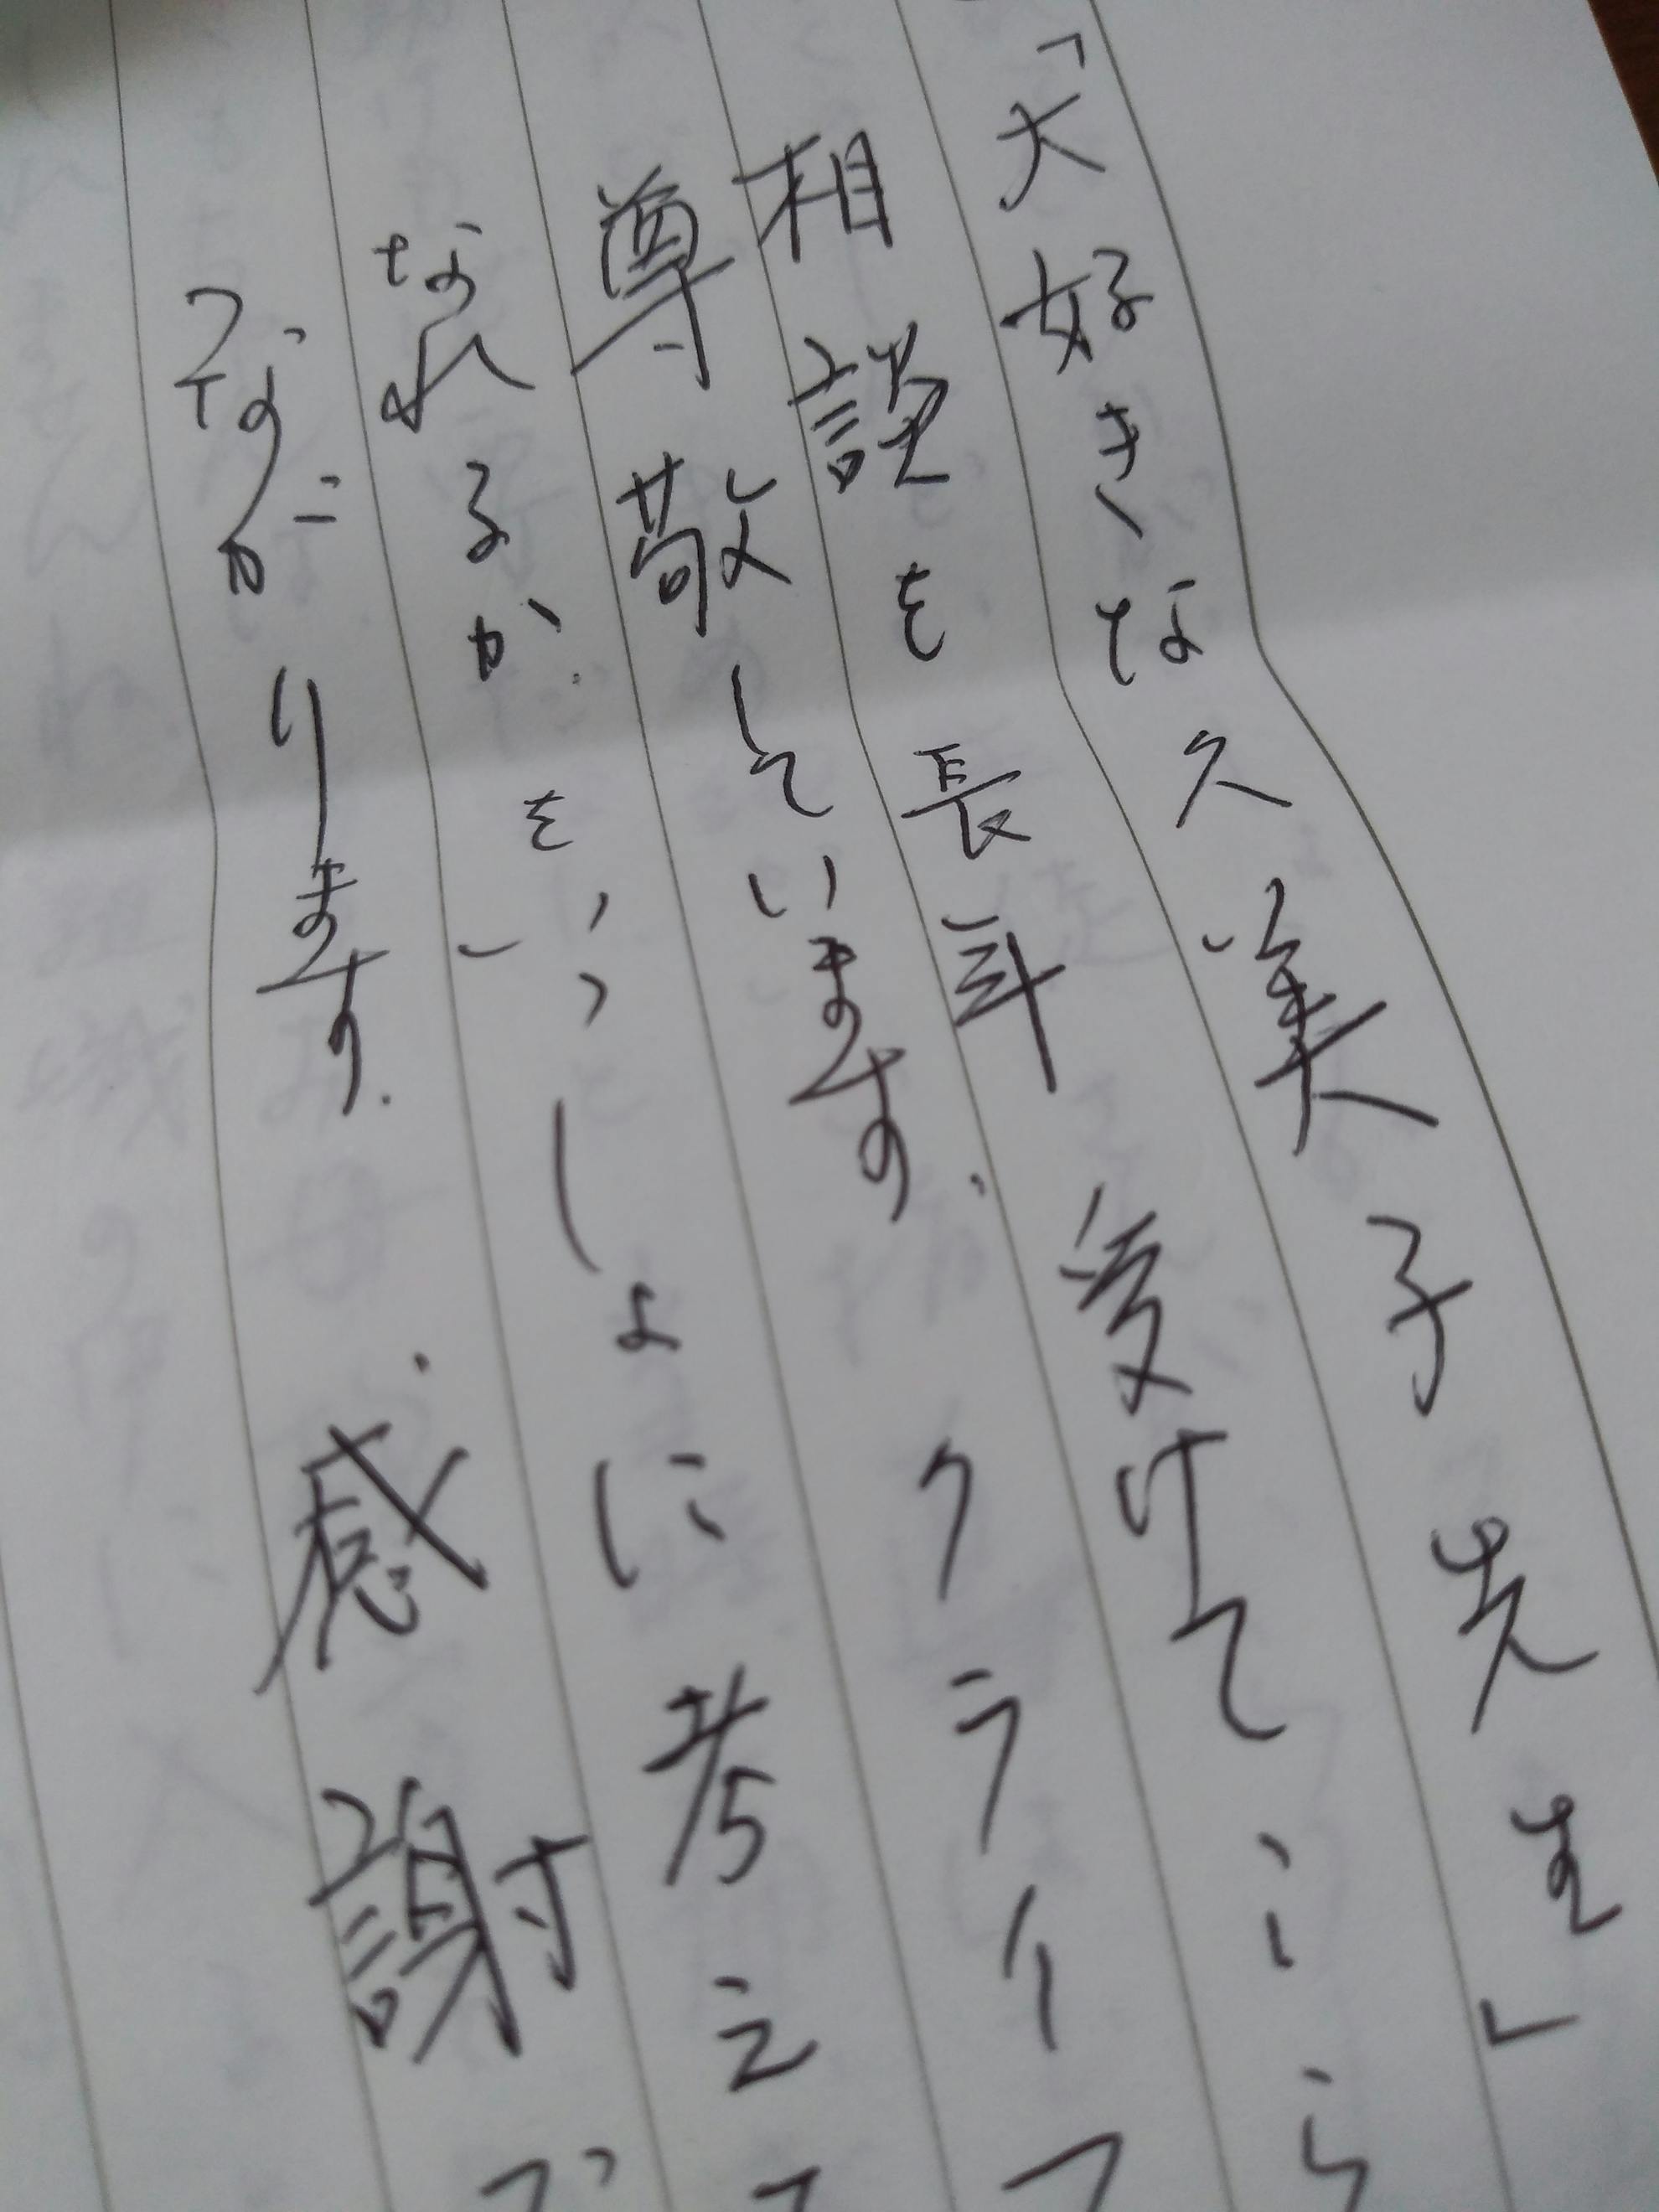 「大好きな久美子先生」
相談を長計受けてこら
尊敬しています。クライ
なれるかをいっしょに考え
でなかります。感謝で